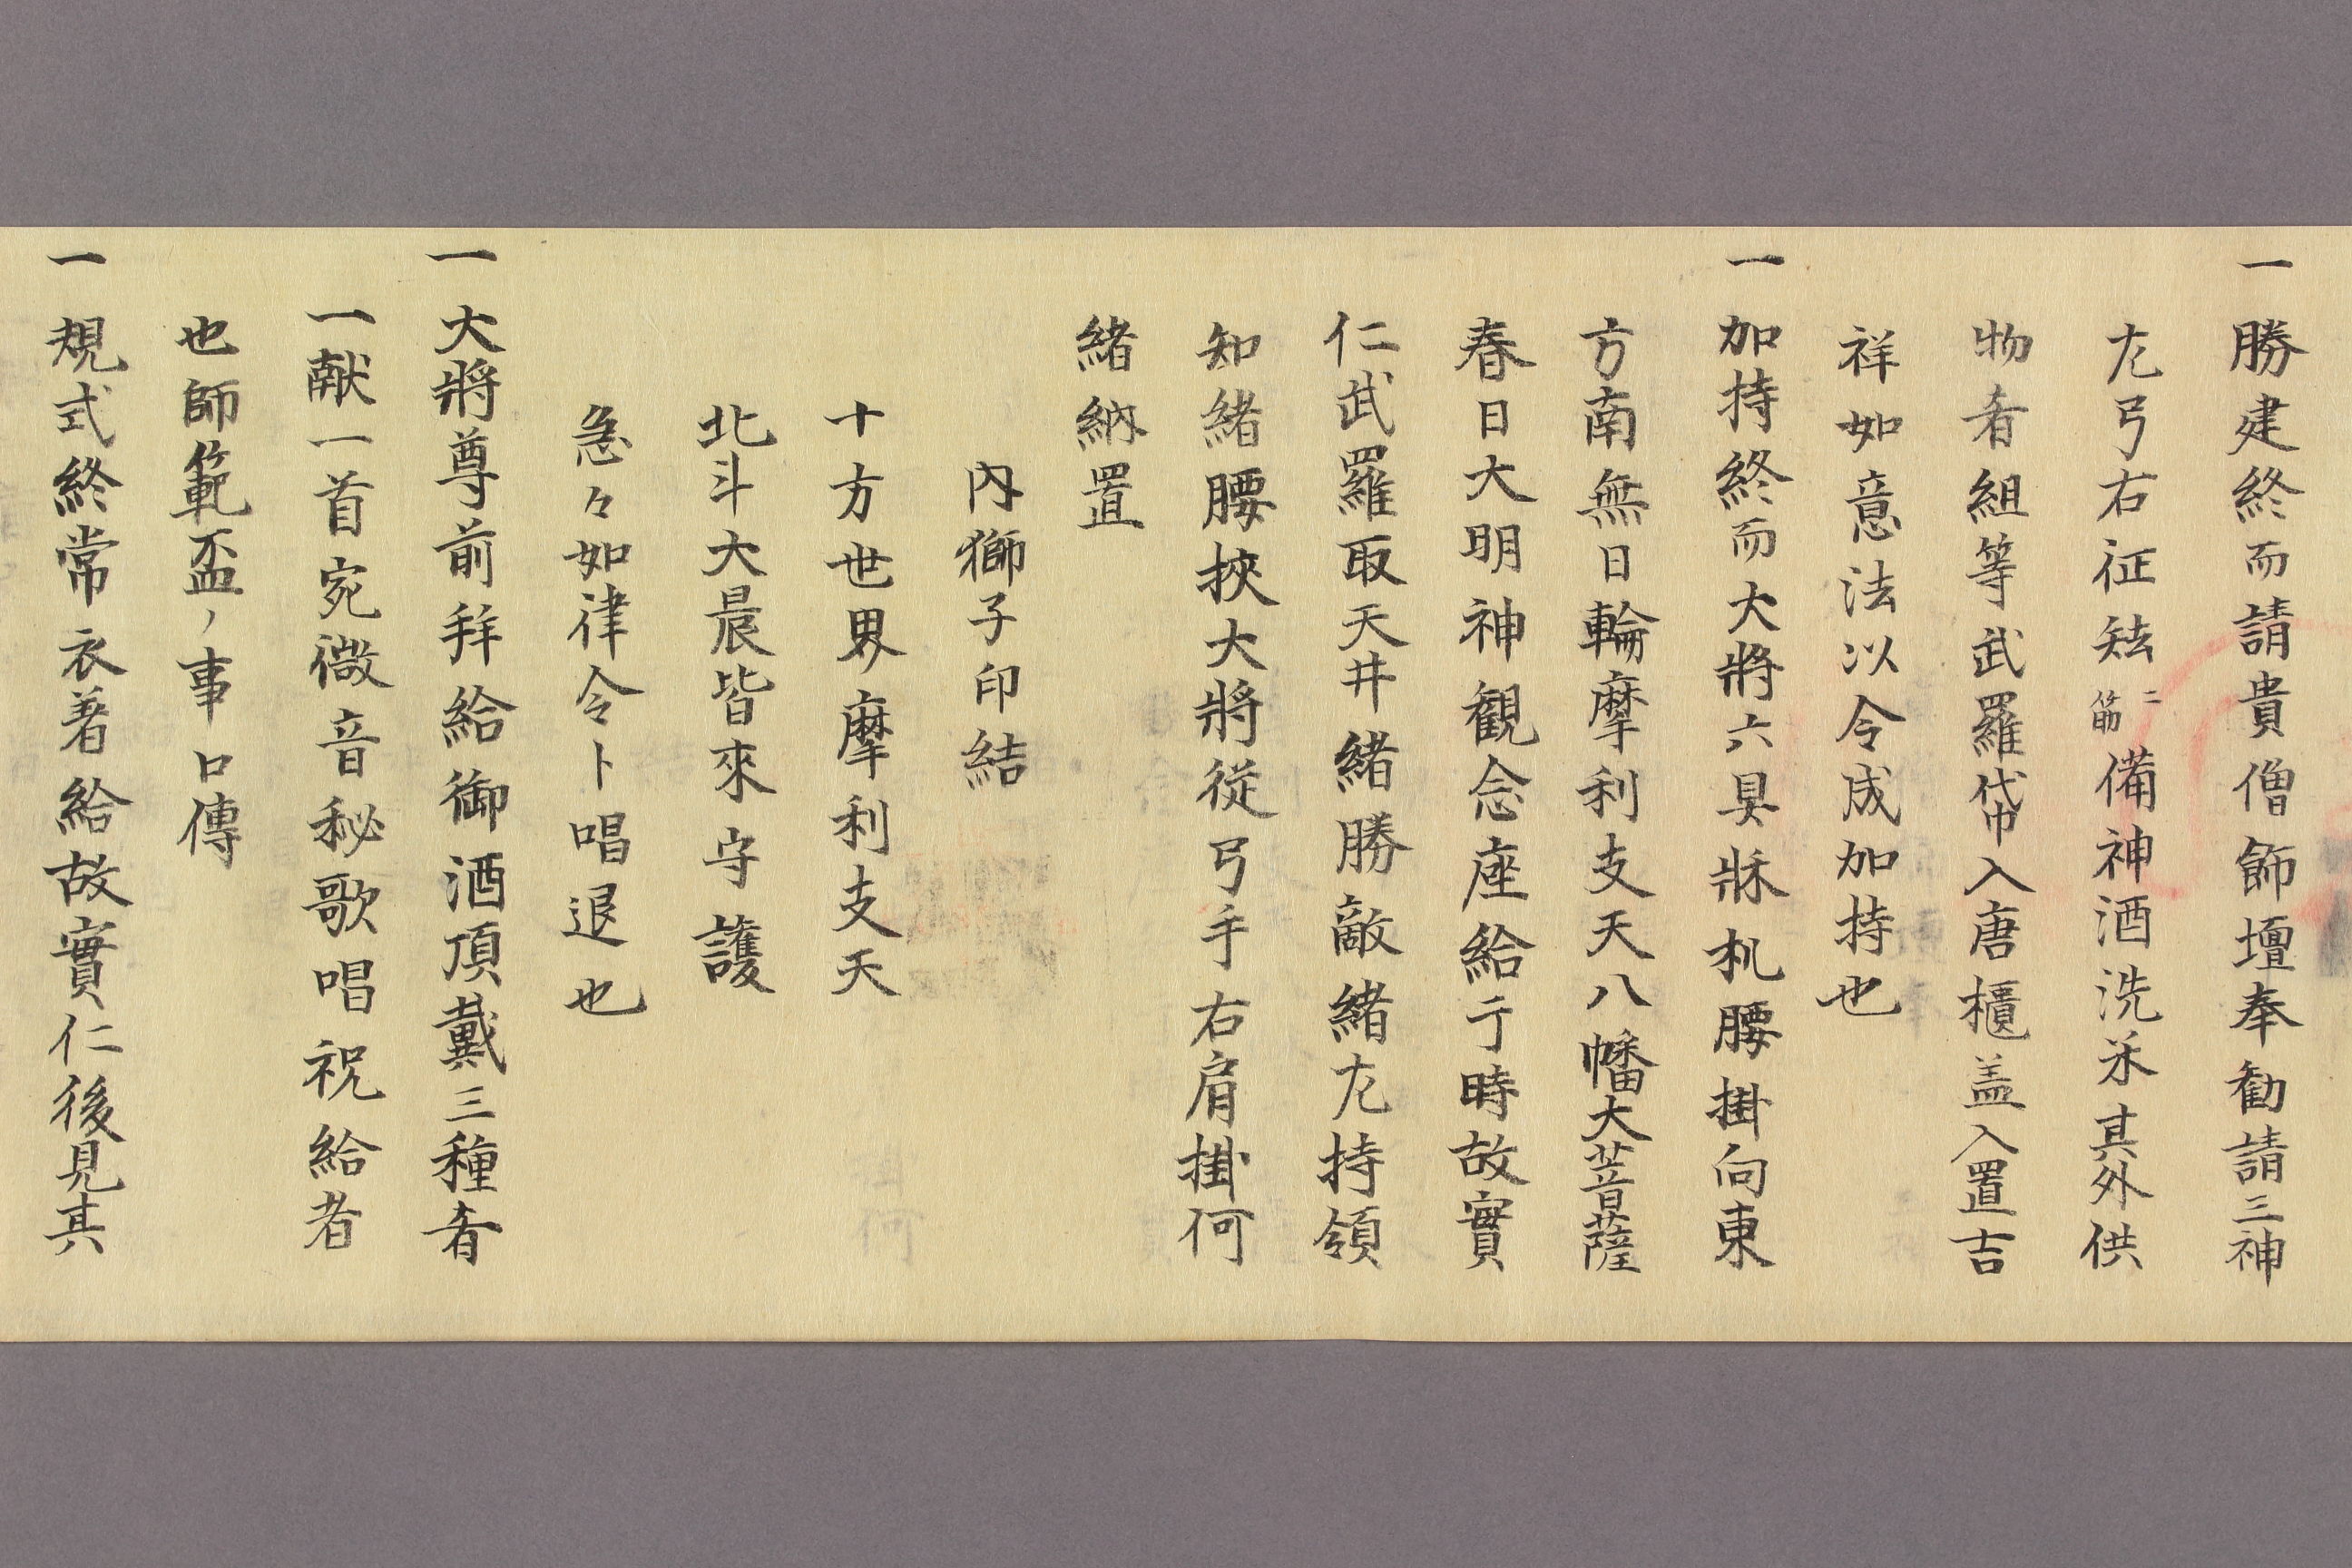 一勝建終而請貴僧飾壇奉勧請三神
左弓右征矢二筋備神酒洗米其外供
物肴組等武羅袋入唐櫃盖入置吉
祥如意法以令成加持也
一加持終而大将六具牀机腰掛向東
方南無日輪摩利支天八幡大菩薩
春日大明神観念座給于時故實
仁武羅取天井緒勝敵緒左持領
知緒腰挾大将從弓手右肩掛何
緒納置
内獅子印結
十方世界摩利支天
北斗大晨皆來守護
急々如律令ト唱退也
一大將尊前拜給御酒頂戴三種肴
一献一首宛微音秘歌唱祝給者
也師範盃ノ事口傳
一規式終常衣著給故實仁後見其